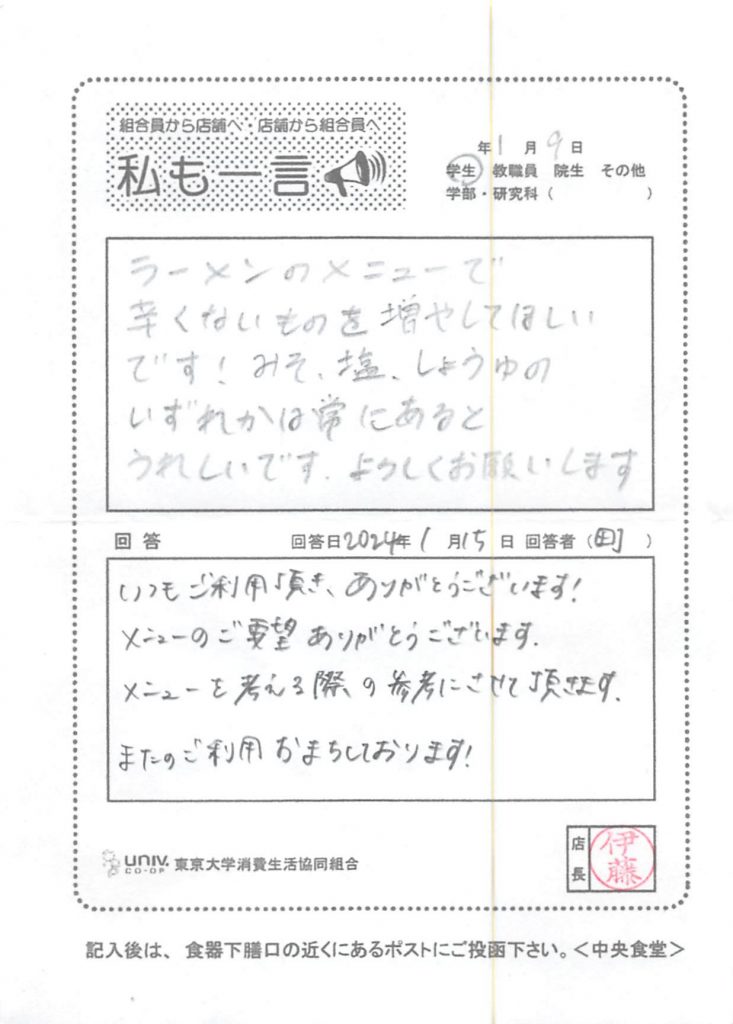 組合員から店舗へ・店舗から組合員へ
私も一言
年 1 月 9 日
学生 教職員 院生 その他
学部・研究科 ( )
ラーメンのメニューで
辛くないものを増やしてほしい
です! みそ、塩、しょうゆの
いずれかは常にあると
うれしいです. よろしくお願いします
回答 回答日2024年 1 月15 日 回答者 (町 )
いつもご利用頂き、ありがとうございます!
メニューのご要望ありがとうございます.
メニューを考える際、の参考にさせて頂きます.
またのご利用おまちしております!
UNIV. CO-OP 東京大学消費生活協同組合
店長 伊藤
記入後は、食器下膳口の近くにあるポストにご投函下さい。<中央食堂>